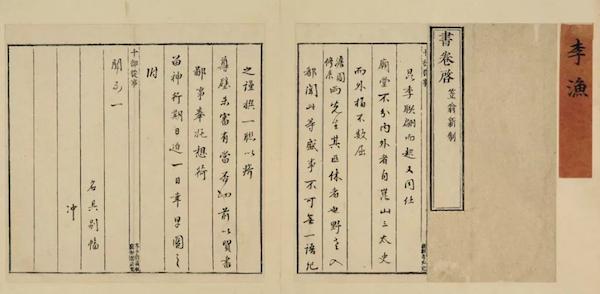 李漁
書卷啓
笠翁新制
昆季聯翩而起又同仕
廟堂不分內外者自崑山三太史
而外指不數屈
兩先生其 者也野 入
都聞此等盛事不可無一語紀
十部從事
之謹撰一聯以
尊壁未審有當否 前以買書
鄙事奉托想荷
留神行期日迫一日幸早圖之
附
聞不一
名具別幅
冲
十部從事